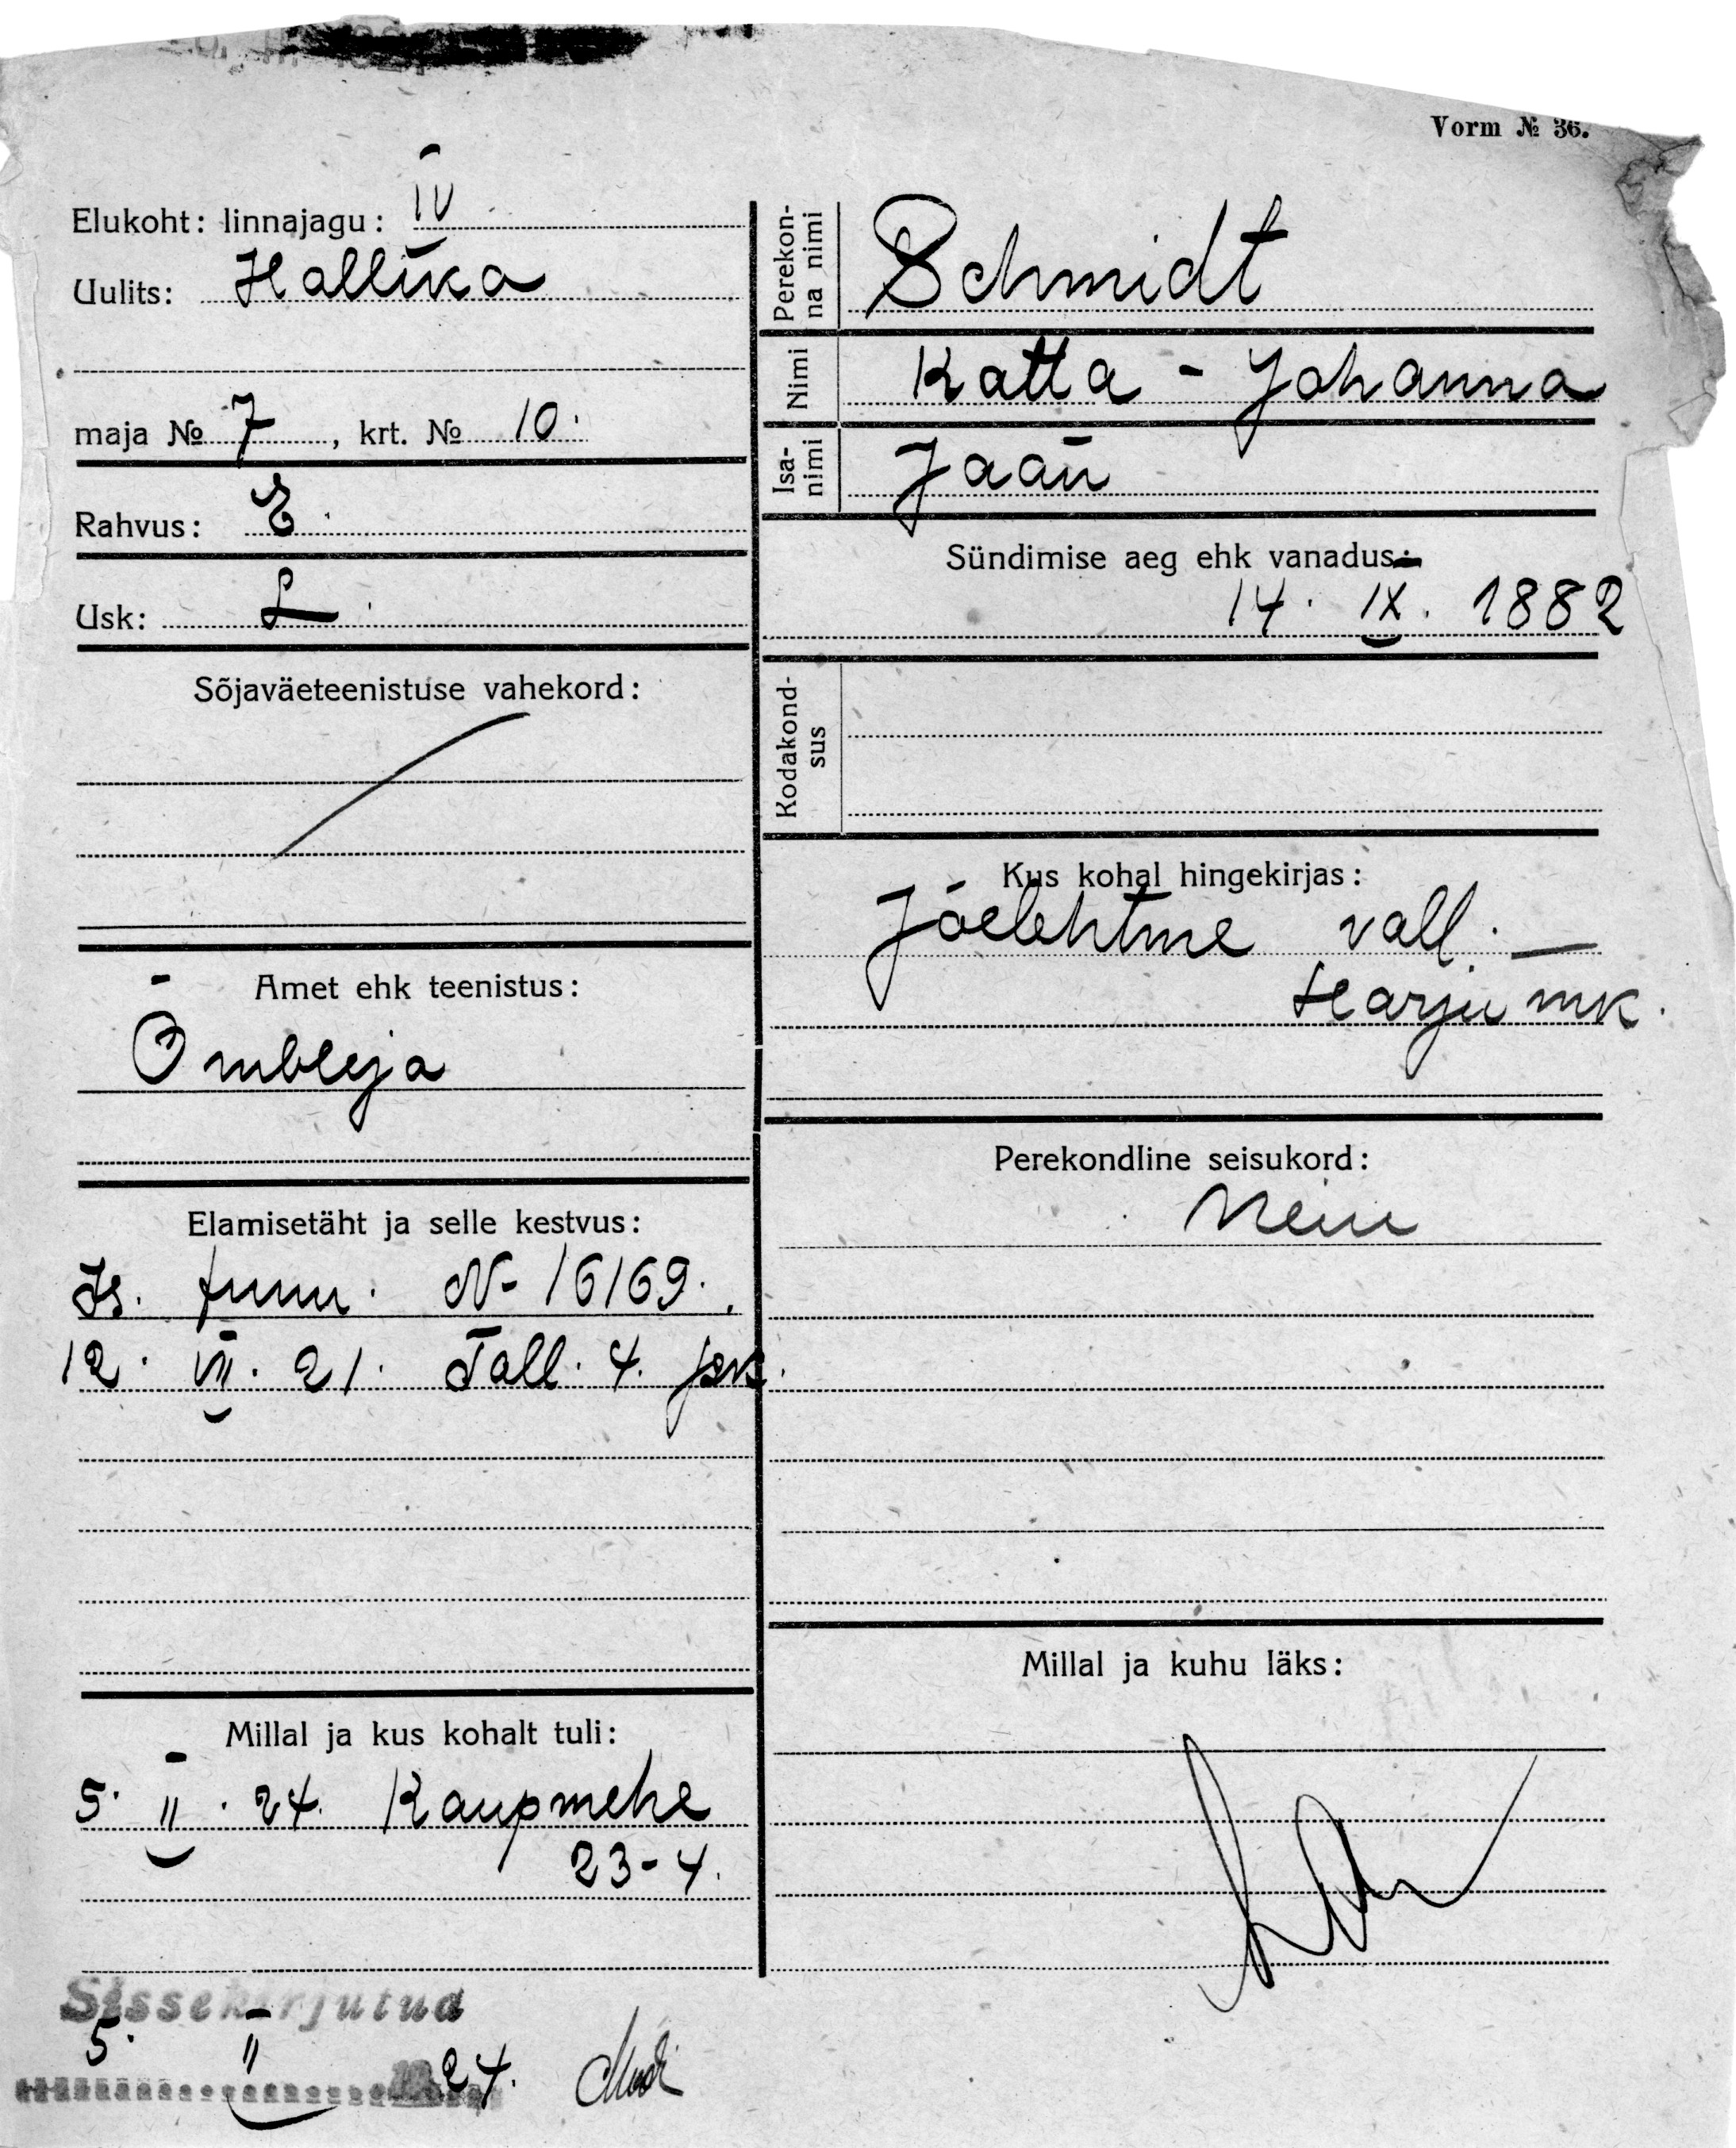 Vorm № 36.
Elukoht: linnajagu: IV
Uulits: Hallika
maja № 7, krt. № 10.
Rahvus: E.
Usk: L.
Sõjaväeteenistuse vahekord:
Amet ehk teenistus:
Õmbleja
Elamisetäht ja selle kestvus:
Is. tunn. № 16169.
12. VII. 21. Tall. 4. jsk.
Millal ja kus kohalt tuli:
5. II. 24. Kaupmehe
23-4.
Sissekirjutud
5. II 1924.
Perekonna nimi
Schmidt
Nimi
Katta - Johanna
Isanimi
Jaan
Sündimise aeg ehk vanadus:
14. IX. 1882
Kodakondsus
Kus kohal hingekirjas:
Jõelehtme vall. —
Harju mk.
Perekondline seisukord:
Neiu
Millal ja kuhu läks: